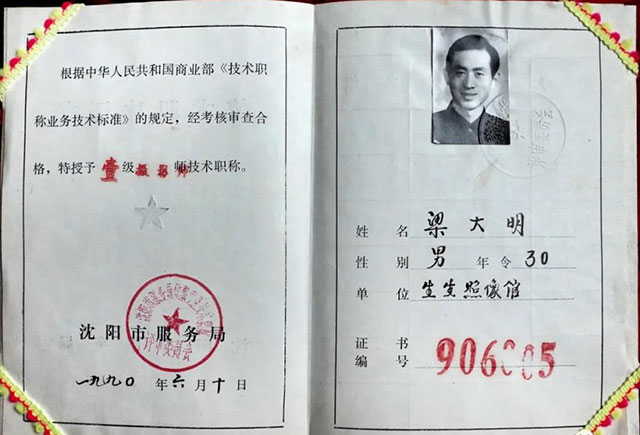 根据中华人民共和国商业部《技术职
称业务技术标准》的规定，经考核审查合
格，特授予壹级摄影师技术职称。
沈阳市服务局
评审委员会
一九九〇年六月十日
姓名 梁大明
性别 男 年令 30
单位 生生照像馆
证书
编号 906005